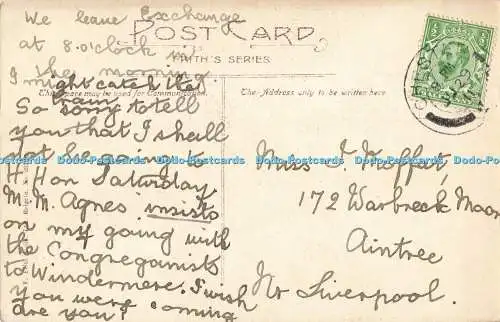 We leave Exchange
at 8.o'clock in
the morning
POST CARD
FRITH'S SERIES.
This space may be used for Communication.
The Address only to be written here.
I might catch that
train
So sorry to tell
you that I shall
not be going to
H. H on Saturday
M. M. Agnes insists
on my going with
the Congreganists
to Windermere. I wish
you were coming
are you?
Miss I. Moffat,
172 Warbreck Moor
Aintree
Nr Liverpool.
CHEST
Dodo-Postcards Dodo-Postcards Dodo-Postcards Dodo-Postcards Dodo-Postcards